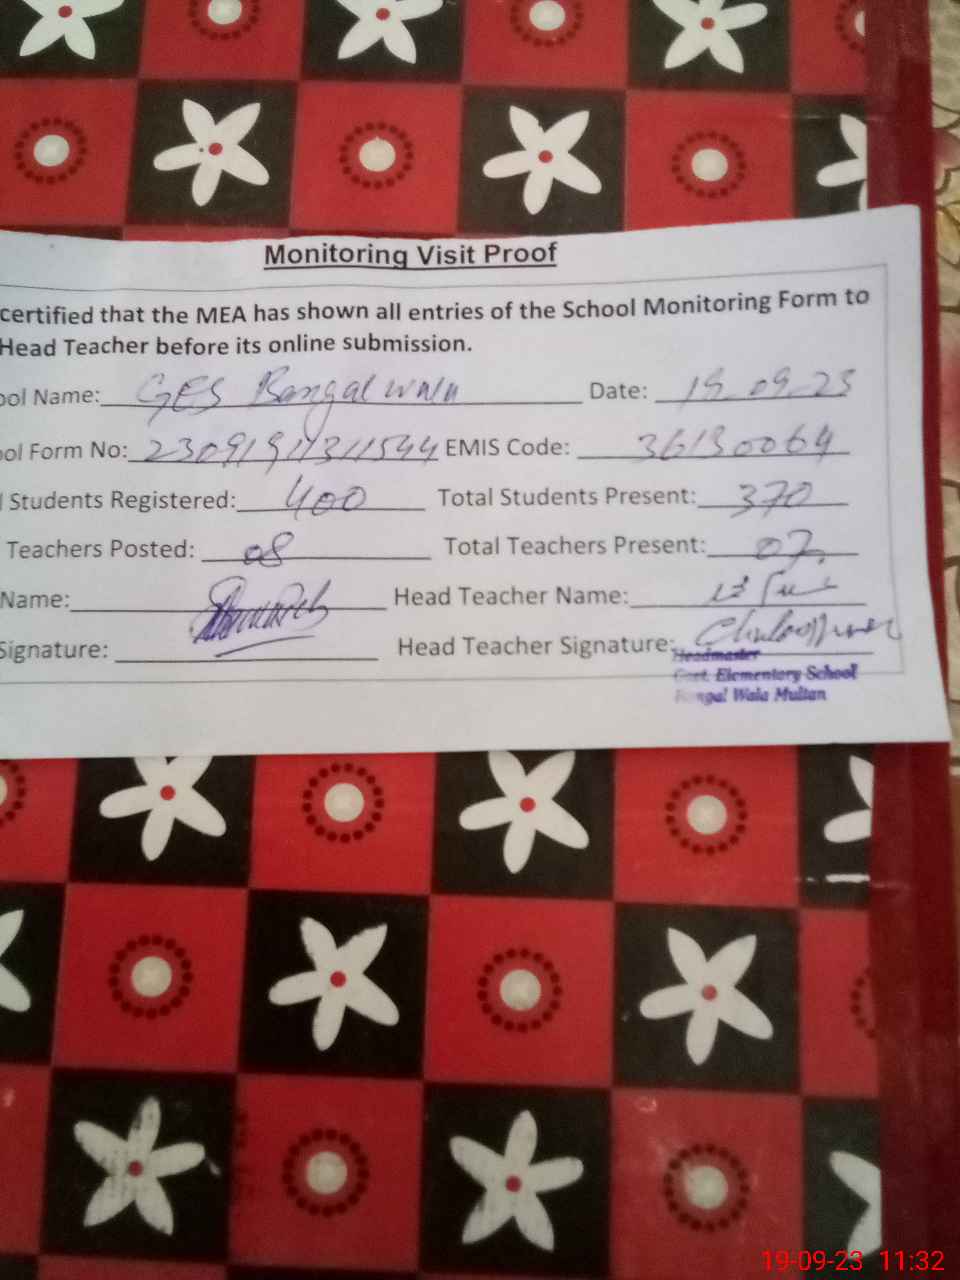 Monitoring Visit Proof
certified that the MEA has shown all entries of the School Monitoring Form to
Head Teacher before its online submission.
ool Name: GES Bangal Wala Date: 19-09-23
ool Form No: EMIS Code: 36130064
l Students Registered: 400 Total Students Present: 370
Teachers Posted: 08 Total Teachers Present: 07
Name: Head Teacher Name:
Signature: Head Teacher Signature:
Headmaster
Govt. Elementary School
Bangal Wala Multan
19-09-23 11:32